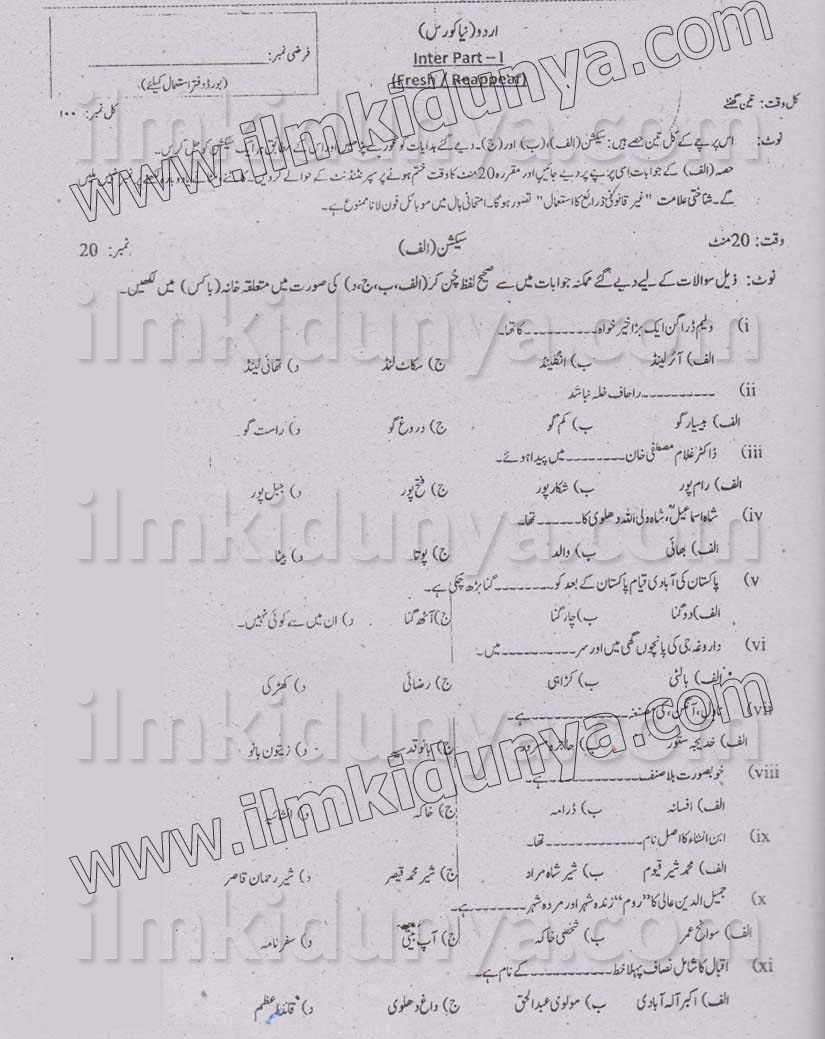 اردو (نیا کورس)
Inter Part – I
(Fresh / Reappear)
فرضی نمبر:
(بورڈ دفتر استعمال کیلئے)
کل وقت: تین گھنٹے
کل نمبر: ۱۰۰
نوٹ: اس پرچے کے کل تین حصے ہیں: سیکشن (الف)، (ب) اور (ج)۔ دیے گئے ہدایات کو غور سے پڑھیں اور اس کے مطابق ہر ایک سیکشن کو حل کریں۔
حصہ (الف) کے جوابات اسی پرچے پر دیے جائیں اور مقررہ 20 منٹ کا وقت ختم ہونے پر سپرنٹنڈنٹ کے حوالے کردیں۔ نہیں ملیں
گے۔ شناختی علامت "غیر قانونی ذرائع کا استعمال" تصور ہوگا۔ امتحانی ہال میں موبائل فون لانا ممنوع ہے۔
وقت: 20 منٹ سیکشن (الف) نمبر: 20
نوٹ: ذیل سوالات کے لیے دیے گئے ممکنہ جوابات میں سے صحیح لفظ چُن کر (الف، ب، ج، د) کی صورت میں متعلقہ خانہ (باکس) میں لکھیں۔
(i ولیم ڈراگن ایک بڑا خیر خواہ ---------- کا تھا۔
الف) آئرلینڈ ب) انگلینڈ ج) سکاٹ لنڈ د) تھائی لینڈ
(ii ---------- را حافظہ نباشد
الف) بسیار گو ب) کم گو ج) دروغ گو د) راست گو
(iii ڈاکٹر غلام مصطفٰی خان -------- میں پیدا ہوئے۔
الف) رام پور ب) شکار پور ج) فتح پور د) جبل پور
(iv شاہ اسماعیلؒ، شاہ ولی اللہ دھلوی کا ------ تھا۔
الف) بھائی ب) والد ج) پوتا د) بیٹا
(v پاکستان کی آبادی قیام پاکستان کے بعد کو -------- گنا بڑھ چکی ہے۔
الف) دوگنا ب) چار گنا ج) آٹھ گنا د) ان میں سے کوئی نہیں۔
(vi داروغہ جی کی پانچوں گھی میں اور سر ---------- میں۔
الف) بالٹی ب) کڑاہی ج) رضائی د) کھڑکی
(vii ناول، آنگن، کی مصنفہ ---------- ہے۔
الف) خدیجہ مستور ب) حاجرہ مسرور ج) بانو قدسیہ د) زیتون بانو
(viii خوبصورت بلا صنف -------------- ہے۔
الف) افسانہ ب) ڈرامہ ج) خاکہ د) انشائیہ
(ix ابن انشاء کا اصل نام ------------ تھا۔
الف) محمد شیر قیوم ب) شیر شاہ مراد ج) شیر محمد قیصر د) شیر رحمان قاصر
(x جمیل الدین عالی کا "روم" زندہ شہر اور مردہ شہر -------- ہے۔
الف) سوانح عمر ب) شخصی خاکہ ج) آپ بیتی د) سفر نامہ
(xi اقبال کا شامل نصاف پہلا خط ---------- کے نام ہے۔
الف) اکبر آلہ آبادی ب) مولوی عبدالحق ج) داغ دھلوی د) قائد اعظم
www.ilmkidunya.com
ilmkidunya.com
ilmkidunya.com
ilmkidunya.com
ilmkidunya.com
www.ilmkidunya.com
ilmkidunya.com